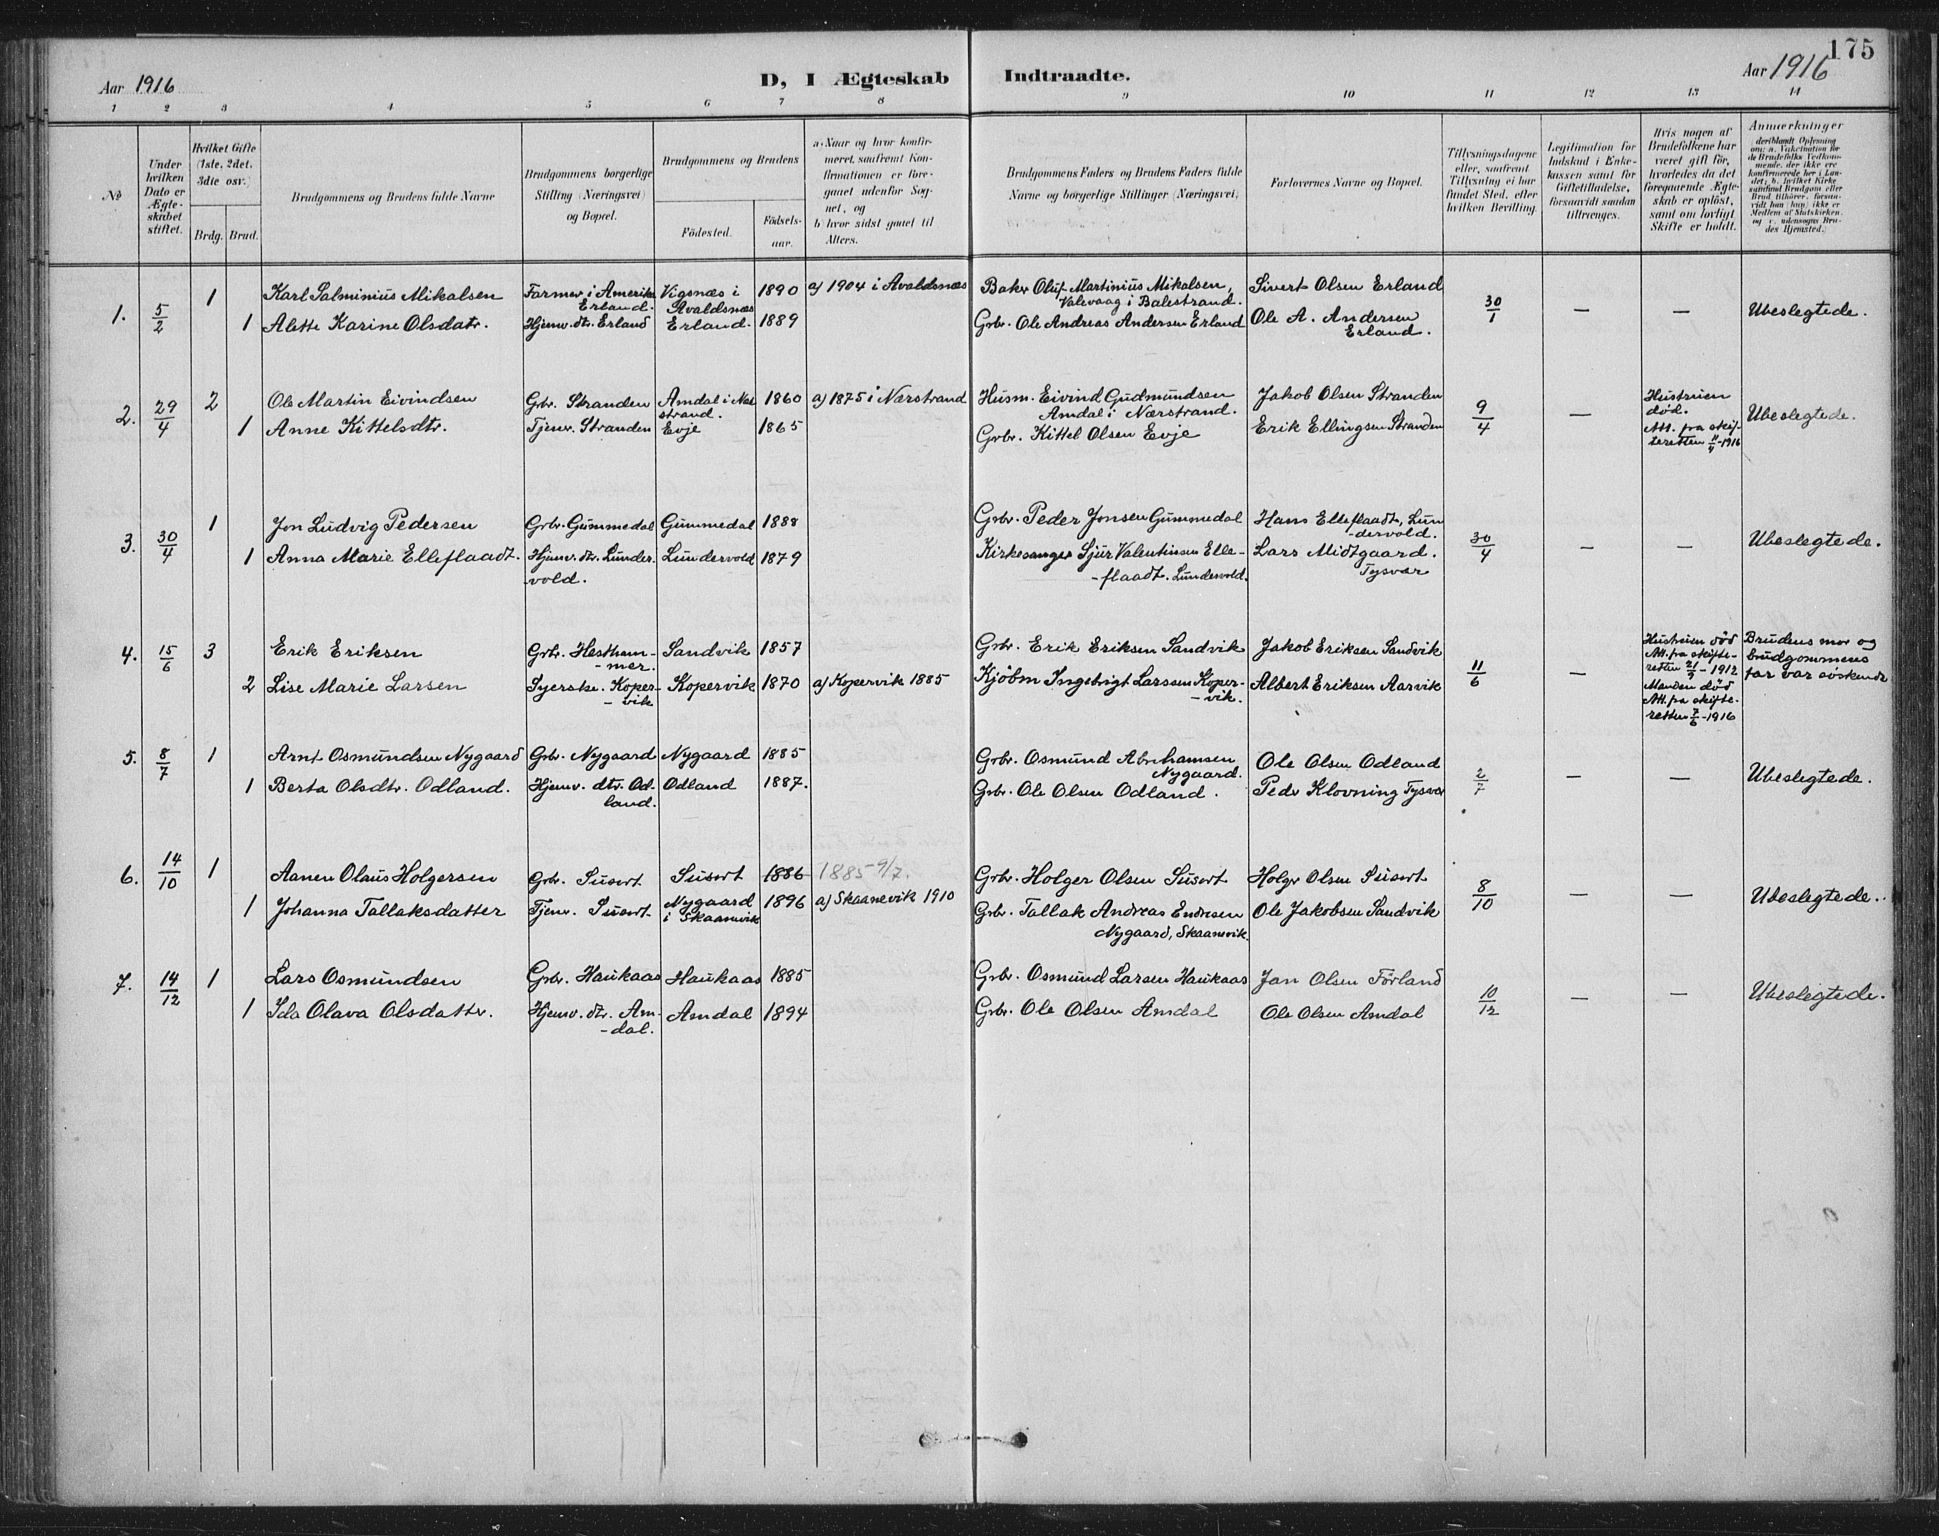 175
Aar 1916
D, I Ægteskab Indtraadte.
Aar 1916
1 2 3 4 5 6 7 8 9 10 11 12 13 14
№
Under hvilken Dato er Ægte-skabet stiftet.
Hvilket Gifte (1ste, 2det, 3die osv.)
Brdg. Brud.
Brudgommens og Brudens fulde Navne
Brudgommens borgerlige Stilling (Næringsvei) og Bopæl.
Brudgommens og Brudens
Fødested.
Fødsels-aar.
a. Naar og hvor konfir-meret, saafremt Kon-firmationen er fore-gaaet udenfor Sog-net, og
b. hvor sidst gaaet til Alters.
Brudgommens Faders og Brudens Faders fulde Navne og borgerlige Stillinger (Næringsvei)
Forlovernes Navne og Bopæl.
Tillysningsdagene eller, saafremt Tillysning ei har fundet Sted, efter hvilken Bevilling.
Legitimation for Indskud i Enke-kassen samt for Giftetilladelse, forsaavidt saadan tiltrænges.
Hvis nogen af Brudefolkene har været gift før, hvorledes da det foregaaende Ægte-skab er opløst, samt om lovligt Skifte er holdt.
Anmærkninger
1. 5/2 1 Karl Salminius Mikalsen Farmer i Amerika Erland. Vigsnæs i Avaldsnæs 1890 a) 1904 i Avaldsnæs Baker Oluf Martinius Mikalsen, Valevaag i Balestrand. Sivert Olsen Erland
1 Alette Karine Olsdatr. Hjemv. dtr. Erland Erland. 1889 Grbr. Ole Andreas Andersen Erland Ole A. Andersen Erland. 30/1 — — Ubeslegtede.
2. 29/4 2 Ole Martin Eivindsen Grbr. Stranden Amdal i Næ strand. 1860 a) 1875 i Nærstrand Husm. Eivind Gudmundsen Amdal i Nærstrand. Jakob Olsen Stranden
1 Anne Kittelsdtr. Tjenv. Stranden Evje 1865 Grbr. Kittel Olsen Evje Erik Ellingsen Stranden 9/4 — Hustruen død. Att. fra skif-teretten 11/4-1916 Ubeslegtede.
3. 30/4 1 Jon Ludvig Pedersen Grbr. Gummedal Gummedal 1888 Grbr. Peder Jonsen Gummedal Hans Elleflaadt, Lun-dervold.
1 Anna Marie Elleflaadt. Hjemv. dtr. Lunder-vold. Lundervold 1879 Kirkesanger Sjur Valentinsen Elle-flaadt. Lundervold. Lars Midtgaard. Tysvær 30/4 — — Ubeslegtede.
4. 15/6 3 Erik Eriksen Grbr. Hestham-mer. Sandvik 1857 Grbr. Erik Eriksen Sandvik Jakob Eriksen Sandvik
2 Lise Marie Larsen Syerske. Koper-vik Kopervik 1870 a) Kopervik 1885 Kjøbm Ingebrigt Larssen Koper-vik. Albert Eriksen Aarvik 11/6 — Hustruen død Att. fra skifte-retten - 1912 Manden død Att. fra skifte-retten 7/6-1916 Brudens mor og brudgommens far var søskende
5. 8/7 1 Arnt Osmundsen Nygaard Grbr. Nygaard Nygaard 1885 Grbr. Osmund Abrahamsen Nygaard. Ole Olsen Odland
1 Berta Olsdtr. Odland. Hjemv. dtr. Od-land. Odland 1887. Grbr. Ole Olsen Odland. Peder Klovning Tysvær 2/7 — — Ubeslegtede.
6. 14/10 1 Aanen Olaus Holgersen Grbr. Susort Susort 1886 1885 9/7. Grbr. Holger Olsen Susort Holger Olsen Susort
1 Johanna Tallaksdatter Tjenv. Susort Nygaard i Skaanevik 1896 a) Skaanevik 1910 Grbr. Tallak Andreas Endresen Nygaard, Skaanevik. Ole Jakobsen Sandvik 8/10 — — Ubeslegtede.
7. 14/12 1 Lars Osmundsen Grbr. Haukaas Haukaas 1885 Grbr. Osmund Larsen Haukaas Jan Olsen Førland
1 Ida Olava Olsdatter. Hjemv. dtr. Am-dal. Amdal 1894 Grbr. Ole Olsen Amdal Ole Olsen Amdal 10/12 — — Ubeslegtede.